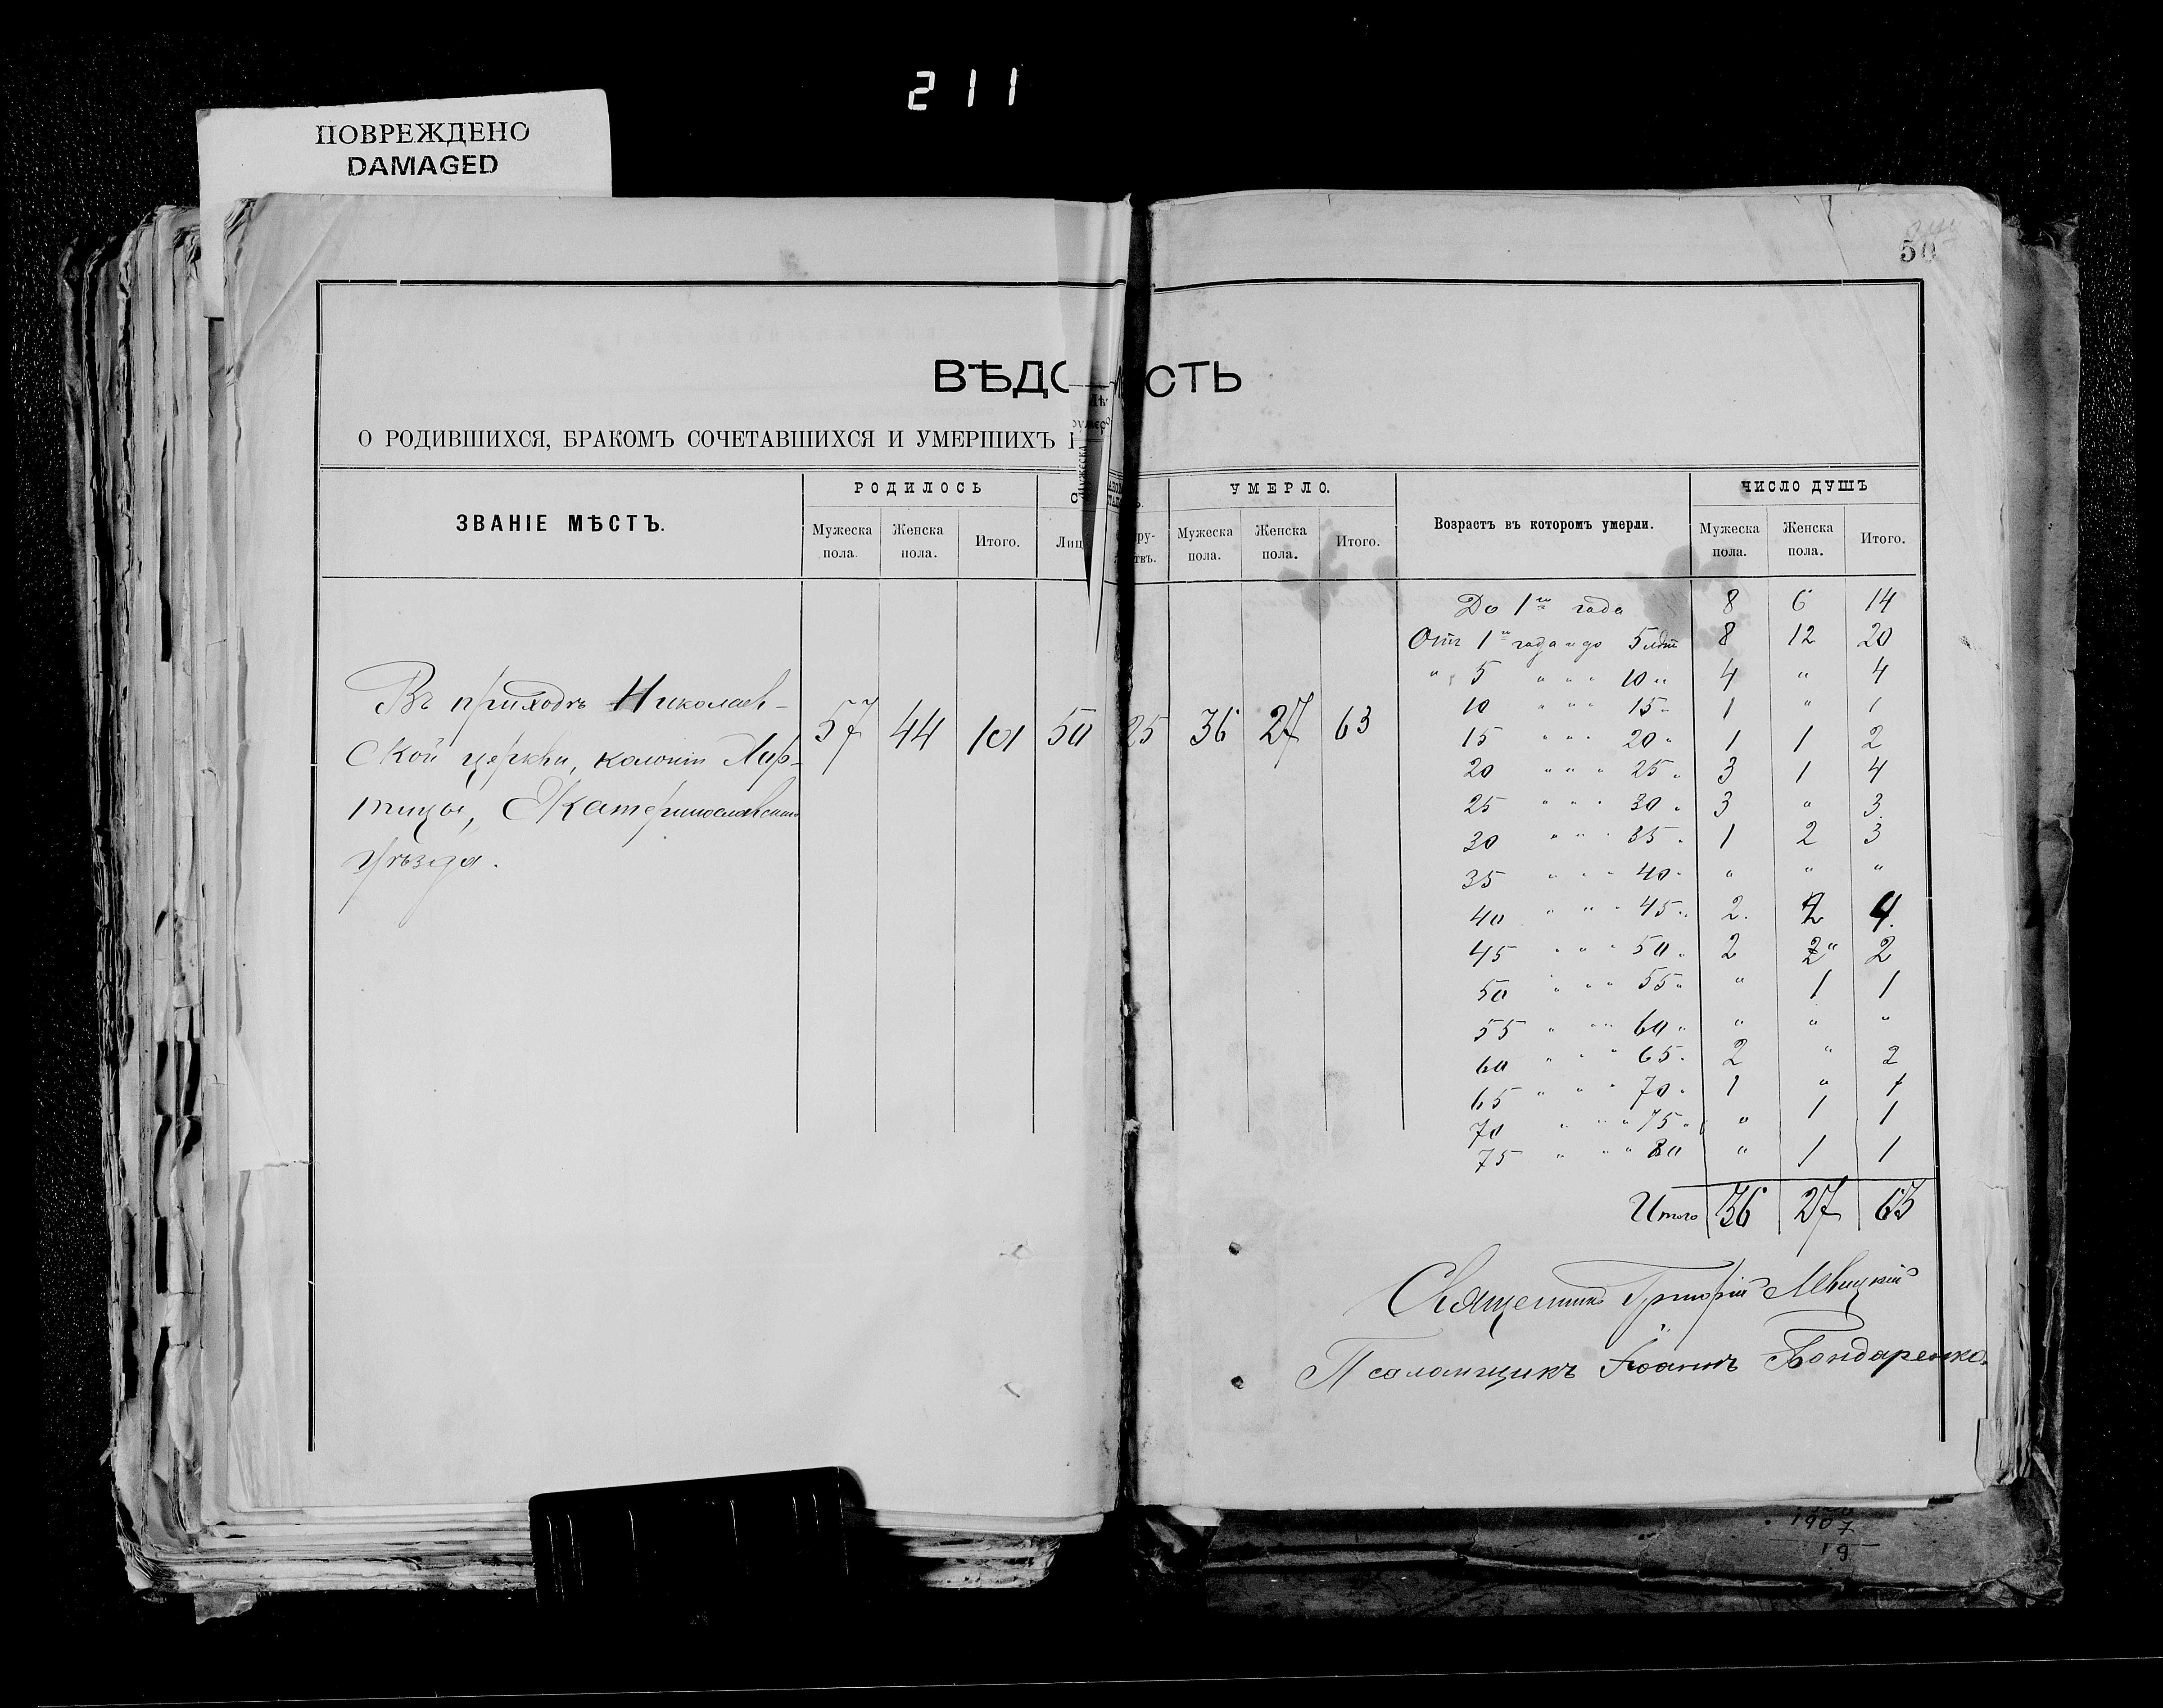 211
ПОВРЕЖДЕНО
DAMAGED
50
ВѢДО СТЬ
О РОДИВШИХСЯ, БРАКОМЪ СОЧЕТАВШИХСЯ И УМЕРШИХЪ
ЗВАНІЕ МѢСТЪ. РОДИЛОСЬ УМЕРЛО. Возрастъ въ которомъ умерли. ЧИСЛО ДУШЪ
Мужеска пола. Женска пола. Итого. Лиц Мужеска пола. Женска пола. Итого. Мужеска пола. Женска пола. Итого.
До 1го года 8 6 14
Отъ 1го года и до 5 лѣтъ 8 12 20
" 5 " " " 10 " 4 " 4
10 " " " 15 " 1 " 1
15 " " " 20 " 1 1 2
20 " " " 25 " 3 1 4
25 " " " 30 " 3 " 3
30 " " " 35 " 1 2 3
35 " " " 40 " " " "
40 " " " 45 " 2 2 4
45 " " " 50 " 2 " 2
50 " " " 55 " " 1 1
55 " " " 60 " " " "
60 " " " 65 " 2 " 2
65 " " " 70 " 1 " 1
70 " " " 75 " " 1 1
75 " " " 80 " 1 1
Итого 36 27 63
Въ приходѣ Николаев-
ской церкви, колоніи Хор-
тицы, Екатеринославскаго
уѣзда.
57 44 101 50 25 36 27 63
Священникъ Григорій Левицкій
Псаломщикъ Іоаннъ Бондаренко.
1907
19